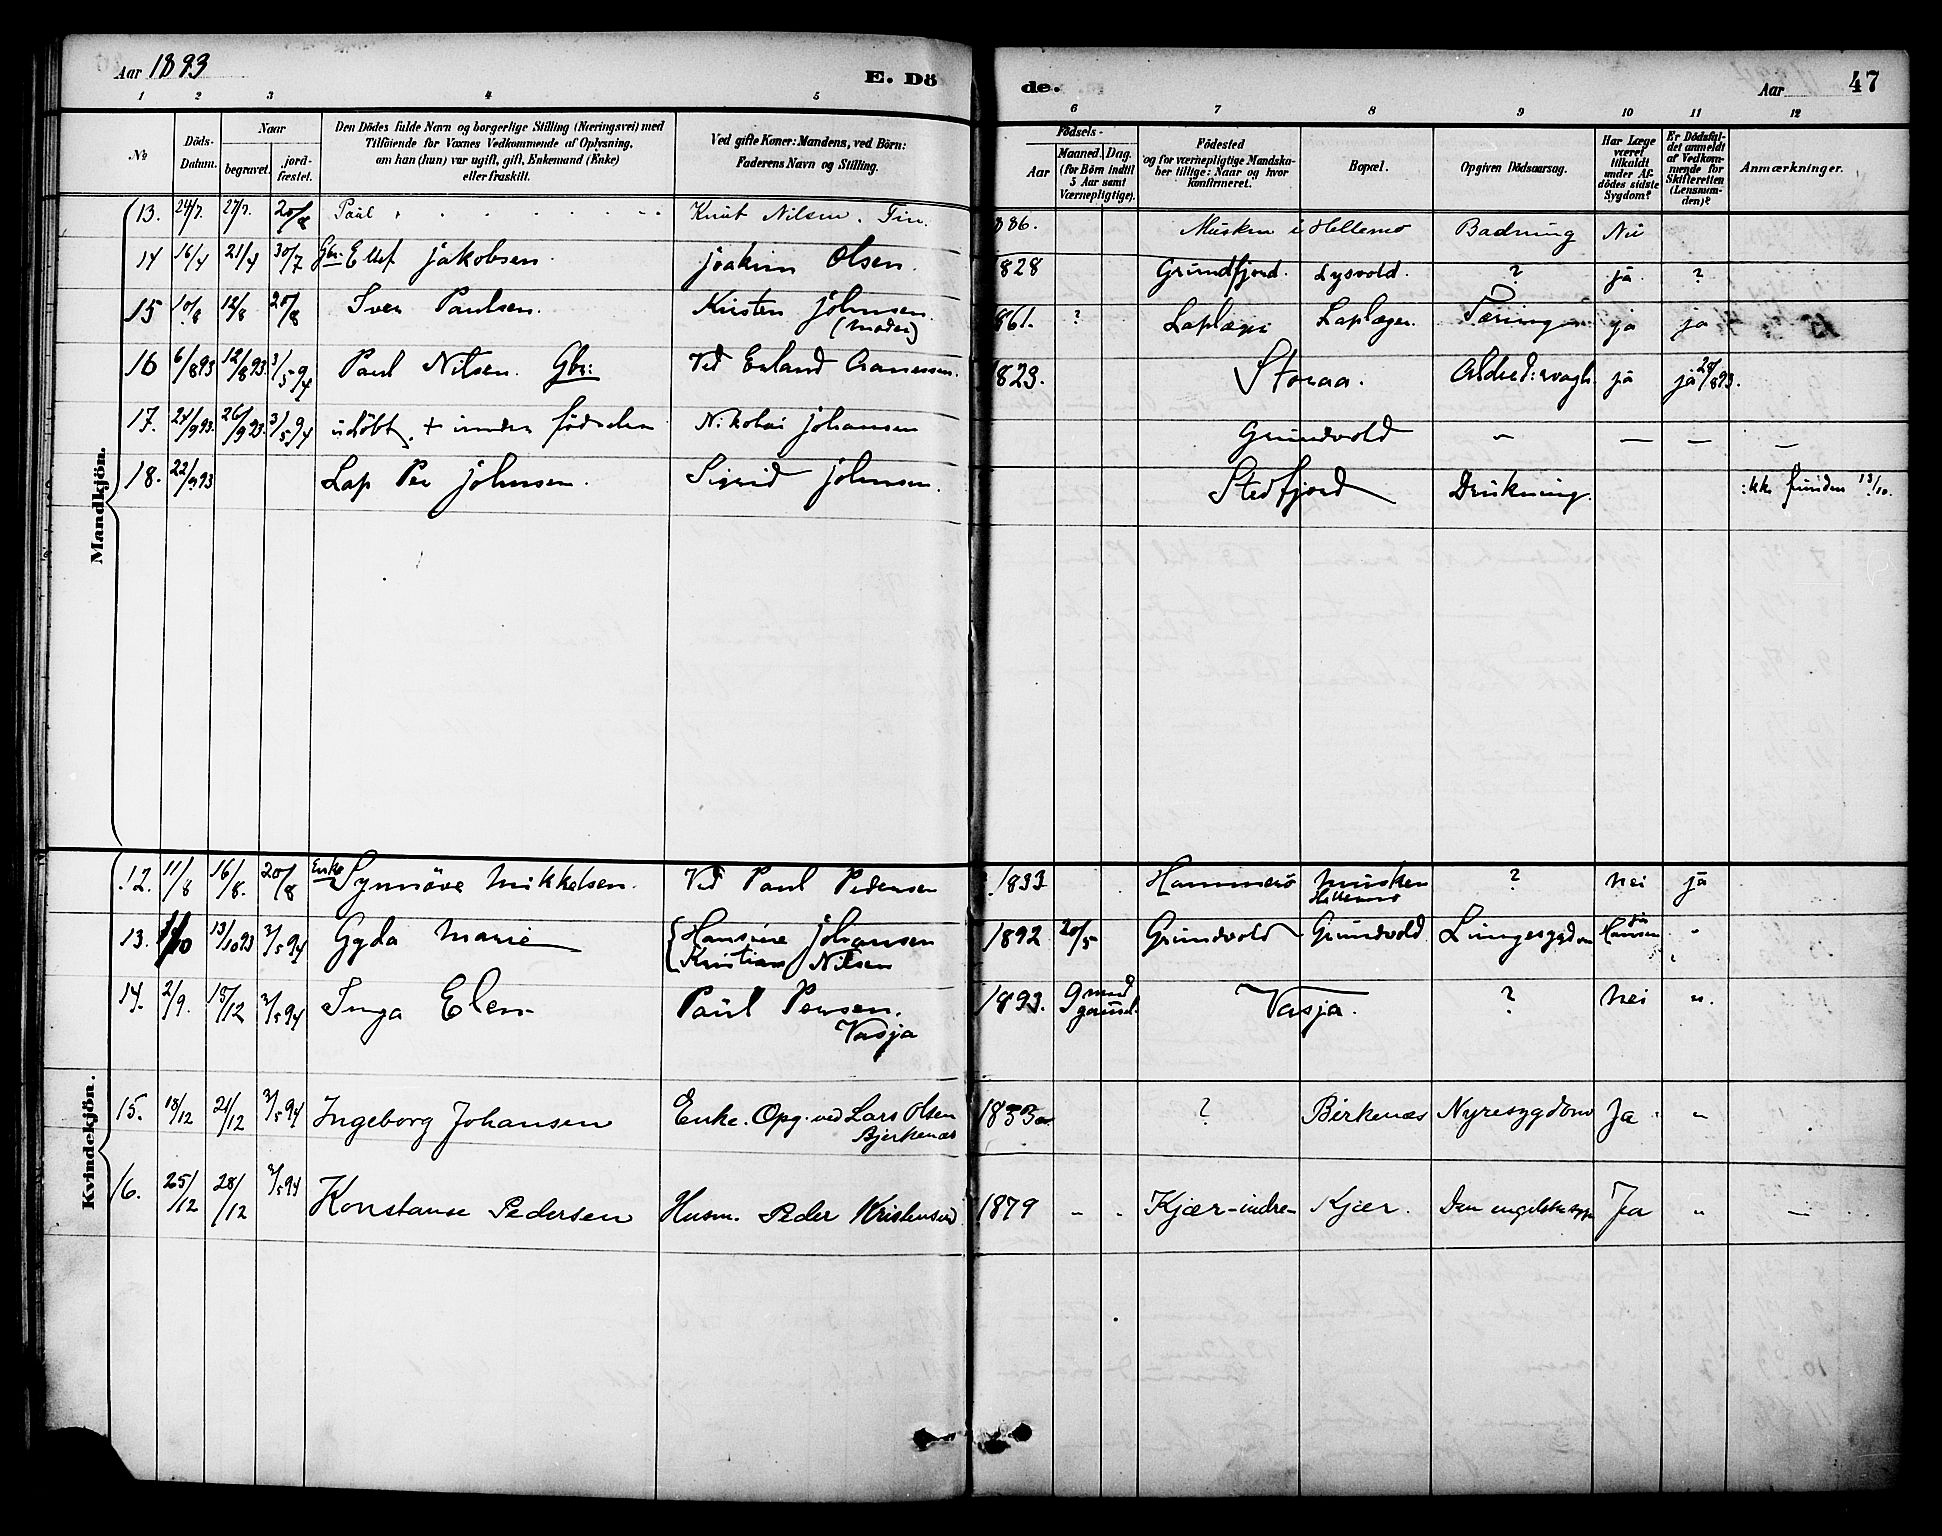 Aar 1893
E. Dö
de.
Aar 47
1 2 3 4 5 6 7 8 9 10 11 12
№
Döds-Datum.
Naar
begravet.
jord-fæstet.
Den Dödes fulde Navn og borgerlige Stilling (Næringsvei) med
Tilföiende for Voxnes Vedkommende af Oplysning,
om han (hun) var ugift, gift, Enkemand (Enke)
eller fraskilt.
Ved gifte Koner: Mandens, ved Börn:
Faderens Navn og Stilling.
Födsels-
Aar
Maaned. Dag.
(for Börn indtil
5 Aar samt
Værnepligtige).
Födested
og for værnepligtige Mandska-
ber tillige: Naar og hvor
konfirmeret.
Bopæl.
Opgiven Dödsaarsag.
Har Læge
været
tilkaldt
under Af-
dödes sidste
Sygdom?
Er Dödsfal-
det anmeldt
af Vedkom-
mende for
Skifteretten
(Lensman-
den)?
Anmærkninger.
Mandkjön.
13. 24/7. 27/7. 20/8 Paul Knut Nilsen. Fin. 886. Musken i Hellemo Badning Nei
14 16/4 21/4 30/7 Gbr. Ellef Jakobsen. Joakim Olsen. 828 Grundfjord. Lysvold. ? ja. ?
15 10/8 12/8 20/8 Sven Paulsen. Kirsten Johnsen.
(Moder) 861. ? Laplæger Laplæger. Tæring ja ja
16 6/893 12/893. 3/594 Paul Nilsen. Gbr: Ved Erland Aronessen. 1823. Storaa. Alderd:svagh. ja ja 28/893.
17. 24/993. 26/993. 3/594 udöbt, + under födselen Nikolai Johansen Grundvold — — — —
18. 22/993 Lap Per Johnsen. Sigrid Johnsen. Stedfjord Drukning. ikke funden 13/10.
Kvindekjön.
12. 11/8 16/8. 20/8 Enke Synnöve Mikkelsen. Ved Paul Pedersen 1833 Hammerö Musken
Hellemo ? nei ja
13. 11/10 13/1093 3/594 Gyda Marie Hansine Johansen
Kristian Nilsen 1892 20/5 Grundvold Grundvold Lungesygdom ja
Hansen "
14. 2/9. 15/12 3/594 Inga Elen Paul Persen.
Vasja 1893. 9 mnd
gammel. Vasja. ? nei ".
15. 18/12 21/12 3/594 Ingeborg Johansen Enke. Opg. ved Lars Olsen
Bjerkenæs 1833 ? Birkenæs Nyresygdom Ja "
16. 25/12 28/12 3/594 Konstanse Pedersen Husm. Peder Kristensen 1879 - - Kjær-indre- Kjær. Den engelske syge Ja " —